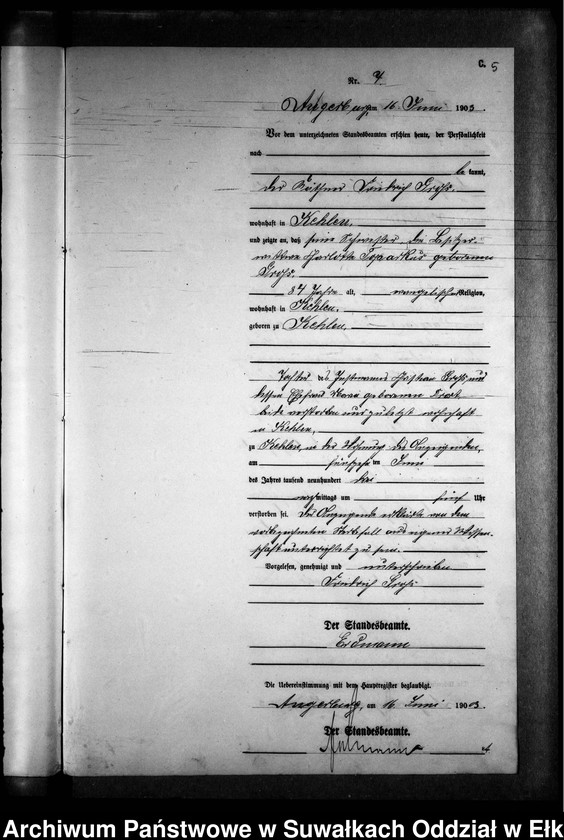 C. 5
Nr. 7.
Angerburg, am 16. Juni 1903.
Vor dem unterzeichneten Standesbeamten erschien heute, der Persönlichkeit
nach
be kannt,
der Käthner Friedrich Groß.
wohnhaft in Kehlen,
und zeigte an, daß seine Schwester, die Besitzer-
wittwe Charlotte geborenen
Groß.
84 Jahre alt, evangelischer Religion,
wohnhaft in Kehlen.
geboren zu Kehlen,
Tochter des Instmanns Christian Groß und
dessen Ehefrau geborenen
beide verstorben und zuletzt wohnhaft
in Kehlen,
zu Kehlen, in der Wohnung des Anzeigenden,
am fünfzehn ten Juni
des Jahres tausend neunhundert drei
mittags um fünf Uhr
verstorben sei. Der Anzeigende erklärte von dem
vorbezeichneten Sterbefall aus eigener Wissen-
schaft unterrichtet zu sein.
Vorgelesen, genehmigt und unterschrieben
Friedrich Groß
Der Standesbeamte.
Erdmann
Die Uebereinstimmung mit dem Hauptregister beglaubigt.
Angerburg, am 16. Juni 1903.
Der Standesbeamte.
Archiwum Państwowe w Suwałkach Oddział w Ełk